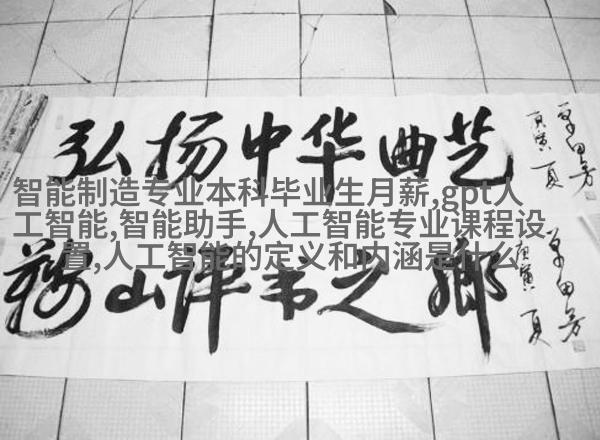 弘扬中华曲艺
庚寅夏
单田芳
智能制造专业本科毕业生月薪,gpt人
工智能,智能助手,人工智能专业课程设
置,人工智能的定义和内涵是什么
鞍山评书之鄉
庚寅夏
单田芳